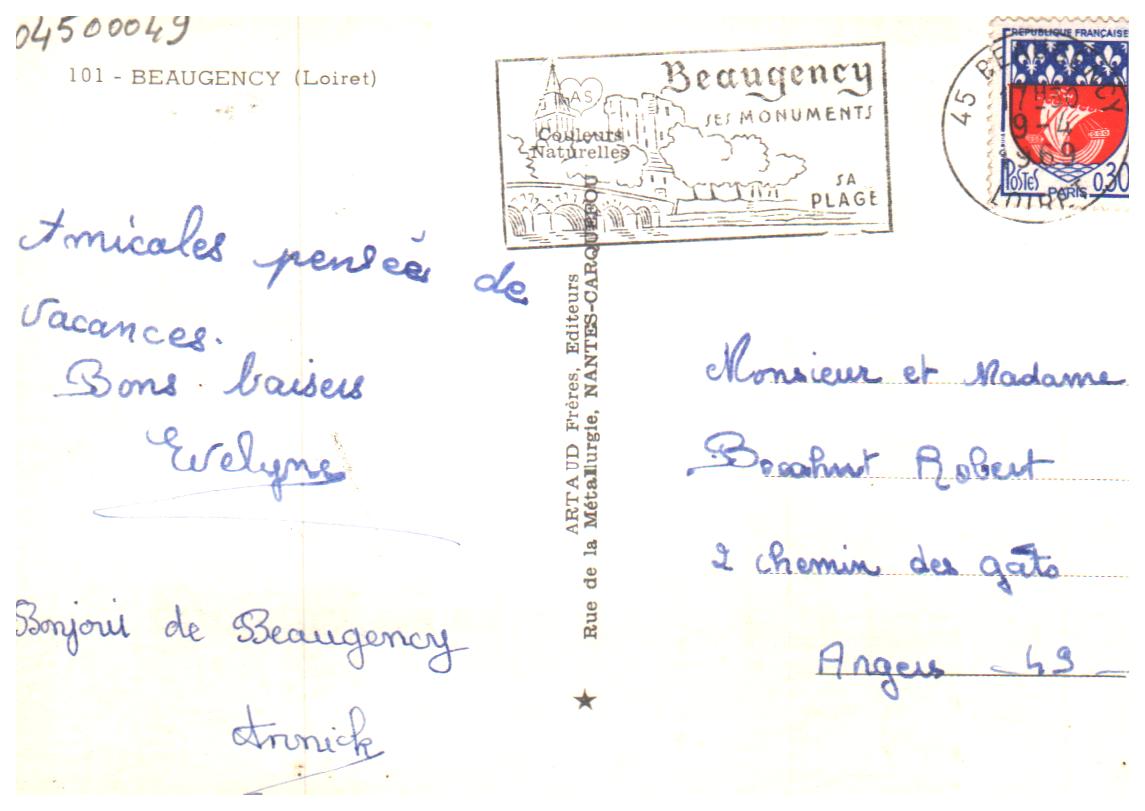 04500049
101 - BEAUGENCY (Loiret)
Beaugency
SES MONUMENTS
SA
PLAGE
AS
Couleurs
Naturelles
RÉPUBLIQUE FRANÇAISE
POSTES PARIS 0,30
45 BEAUGENCY
17H30
9-4
1969
LOIRET
Amicales pensées de
vacances.
Bons baisers
Evelyne
Bonjour de Beaugency
Annick
ARTAUD Frères, Editeurs
Rue de la Métallurgie, NANTES-CARQUEFOU
Monsieur et Madame
Robert
2 chemin des gâts
Angers 49